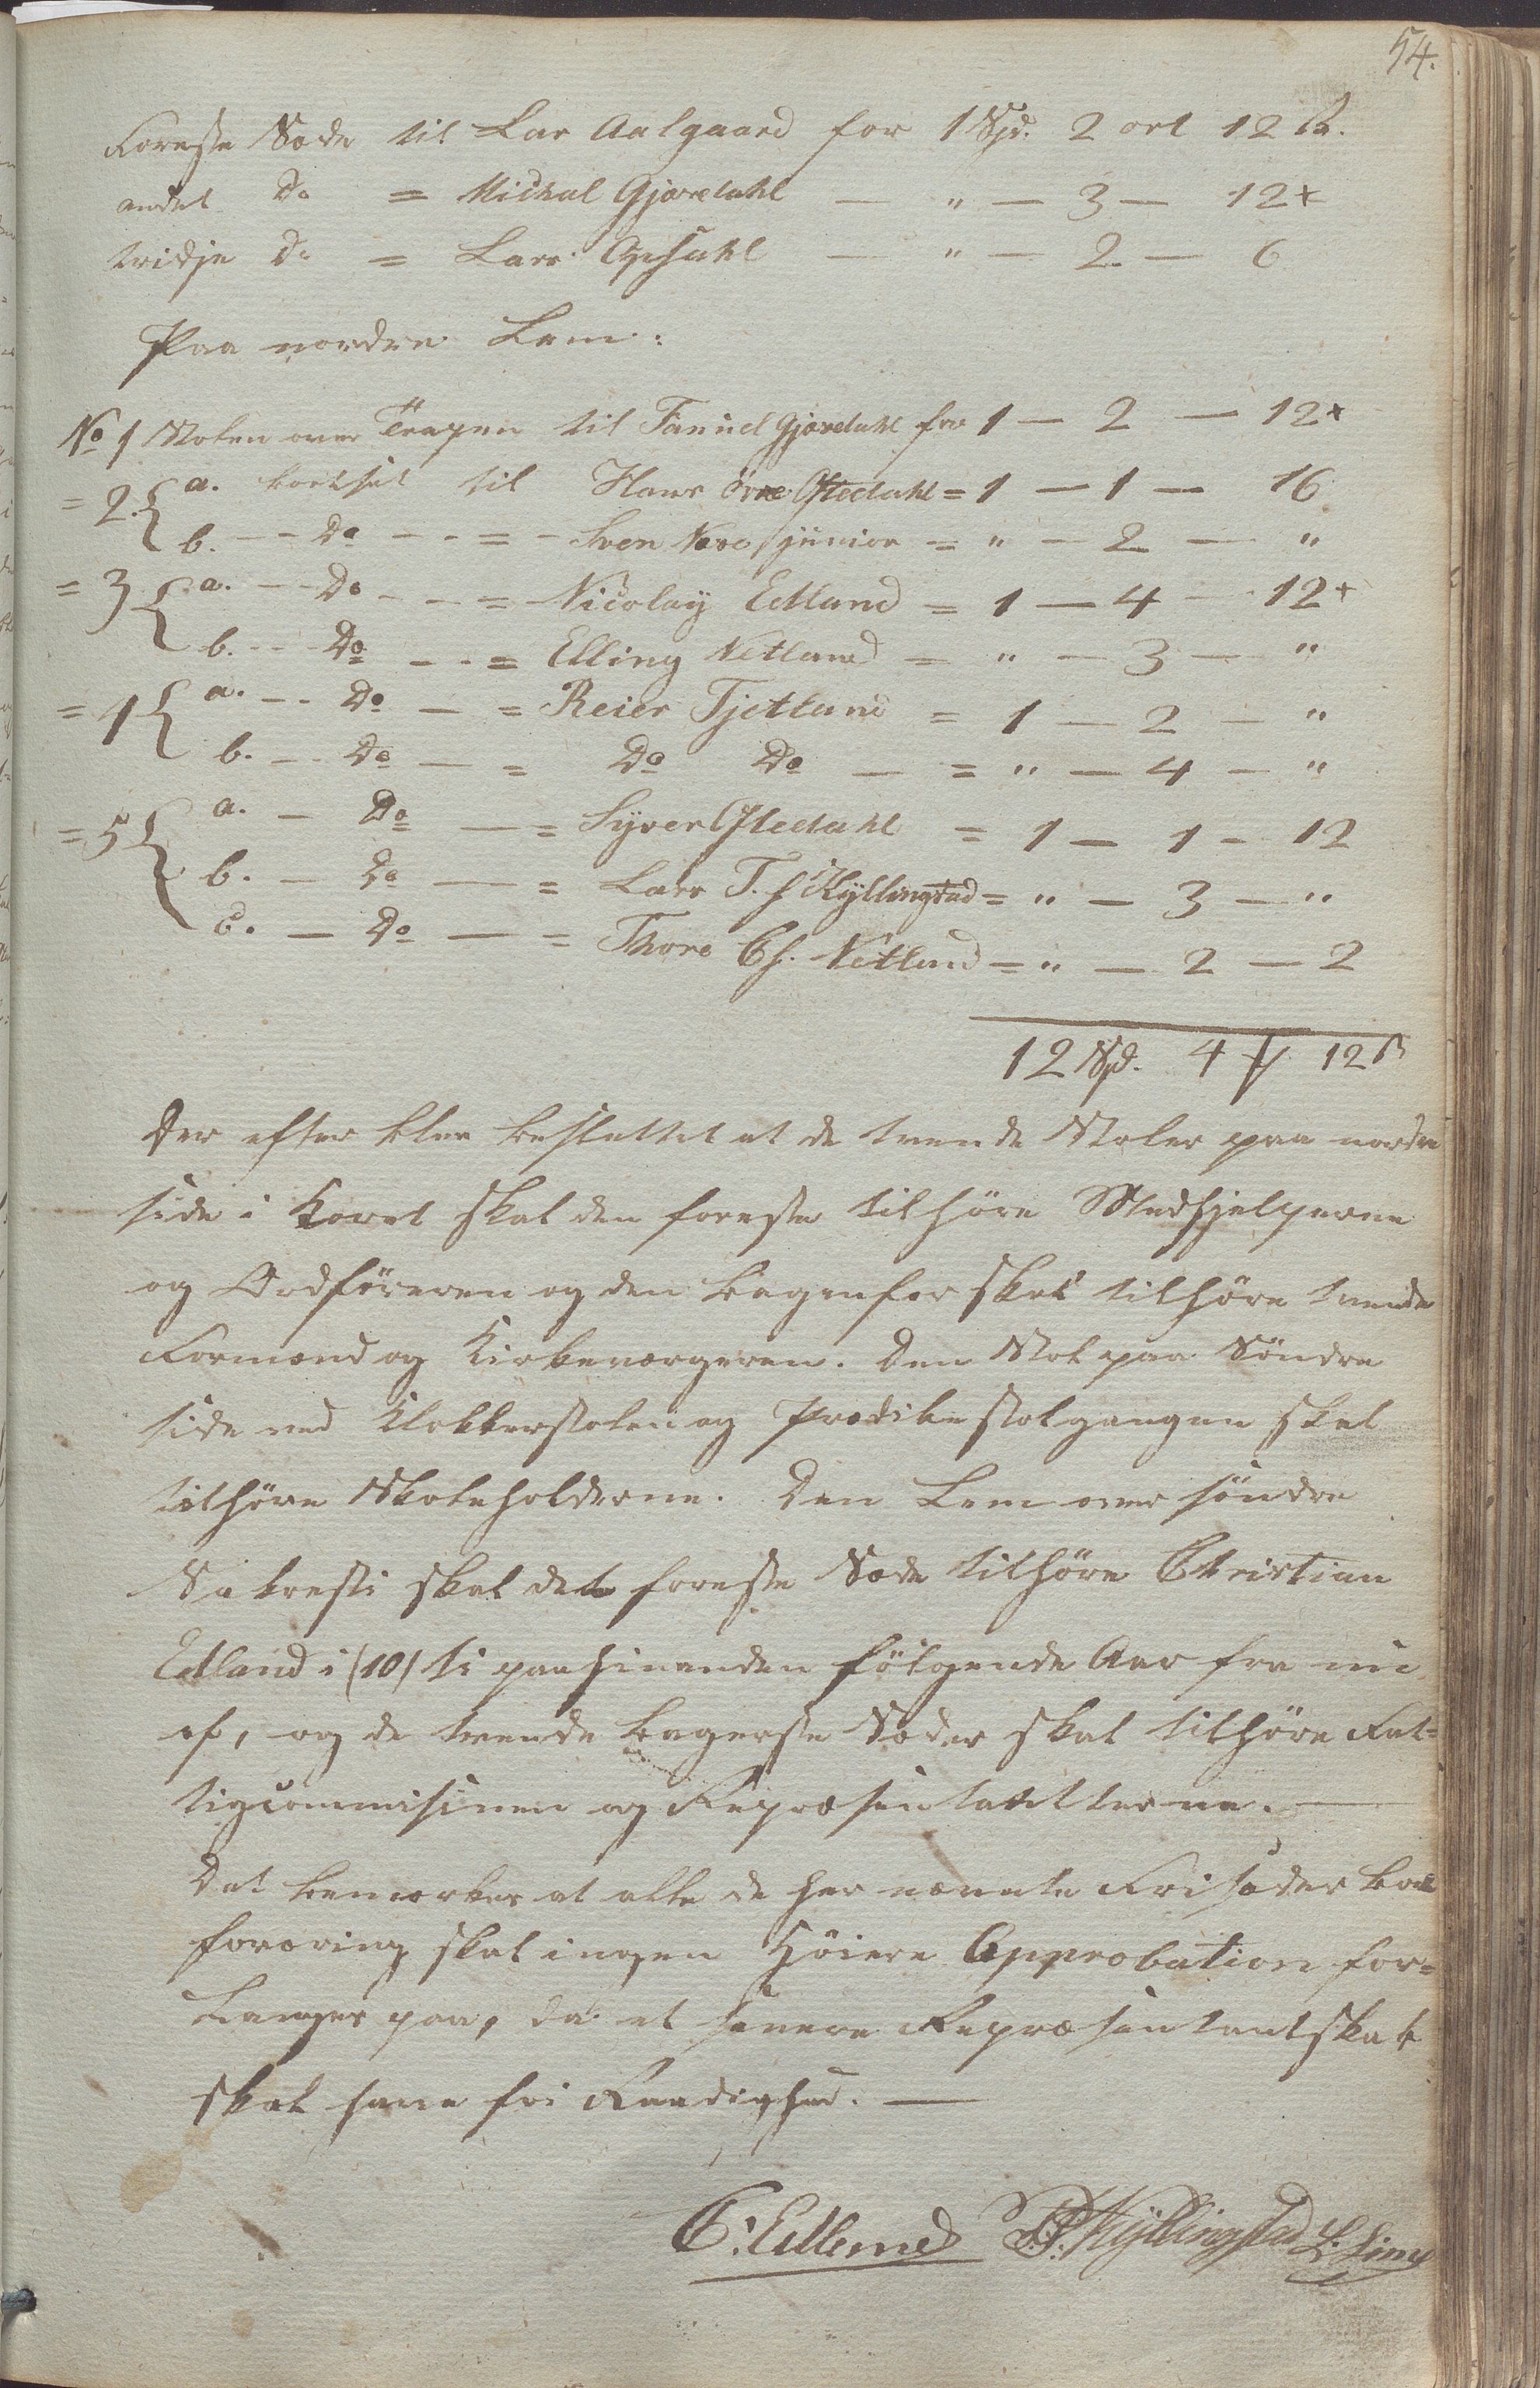 54.
Foreste Sæde til Lar Aalgaard for 1 Spd. 2 ort 12 ß.
andet Do = Michal Gjøredahl — " — 3 — 12+
tridje Do = Lars Opsahl — " — 2 — 6
Paa nordre Lem:
No 1 Stolen over Trapen til Tanniel Gjøredahl for 1 — 2 — 12+
= 2. a. bordset til Hans övre Oftedahl = 1 — 1 — 16
b. -- Do -- = - Sven Næse junior = " — 2 — "
= 3 a. -- Do -- = Nicolay Edland = 1 — 4 — 12+
b. -- Do -- = Elling Netland = " — 3 — "
= 1 a. -- Do — = Reier Tjetland = 1 — 2 — "
b. -- Do — = Do Do — = " — 4 — "
= 5 a. — Do — = Syver Oftedahl = 1 — 1 - 12
b. — Do — = Lars T. s Kyllingstad = " — 3 — "
c. — Do — = Thore C s. Netland = " — 2 — 2
12 Spd. 4 12 ß
Der efter blev besluttet at de tvende Stoler paa nordre
side i Koret skal den foreste tilhöre Medhjelperne
og Ordföreren og den bagenfor skal tilhöre tvende
Formænd og Kirkeværgeren. Den Stol paa Söndre
side ved Klokkerstolen og Prædikestolgangen skal
tilhöre Skoleholderne. Den Lem over söndre
Sakresti skal det foreste Sæde tilhöre Christian
Edland i (10) ti paahinanden fölgende Aar fra nu
af, og de tvende bagerste Sæder skal tilhöre Fat=
tigcommisinen og Repræsentatterne. —
Det bemærkes at alle de her nævnte Frisæder
foræring skal ingen höiere Approbation for=
langes paa, da et senere Repræsentantskab
skal have fri Raadighed. —
C. Edland T. Kyllingstad L. Lima